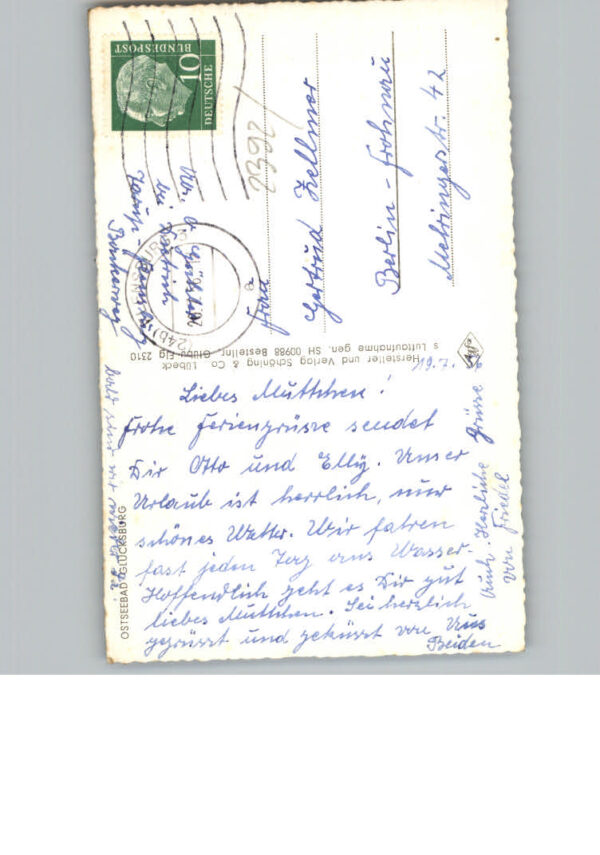 19.7.
Liebes Muttchen!
Frohe Feriengrüsse sendet
Dir Otto und Elly. Unser
Urlaub ist herrlich, nur
schönes Wetter. Wir fahren
fast jeden Tag ans Wasser.
Hoffendlich geht es Dir gut
liebes Muttchen. Sei herzlich
gegrüsst und geküsst von Uns
Beiden
Auch Herzliche Grüsse
von Friedel
Frau
Gertrud Zellmer
Berlin-Frohnau
42
2392/
DEUTSCHE
BUNDESPOST
10
Hersteller und Verlag Schöning & Co. Lübeck
s Luftaufnahme gen. SH 00988 Bestellnr. Glübu Elg 2310
OSTSEEBAD GLÜCKSBURG